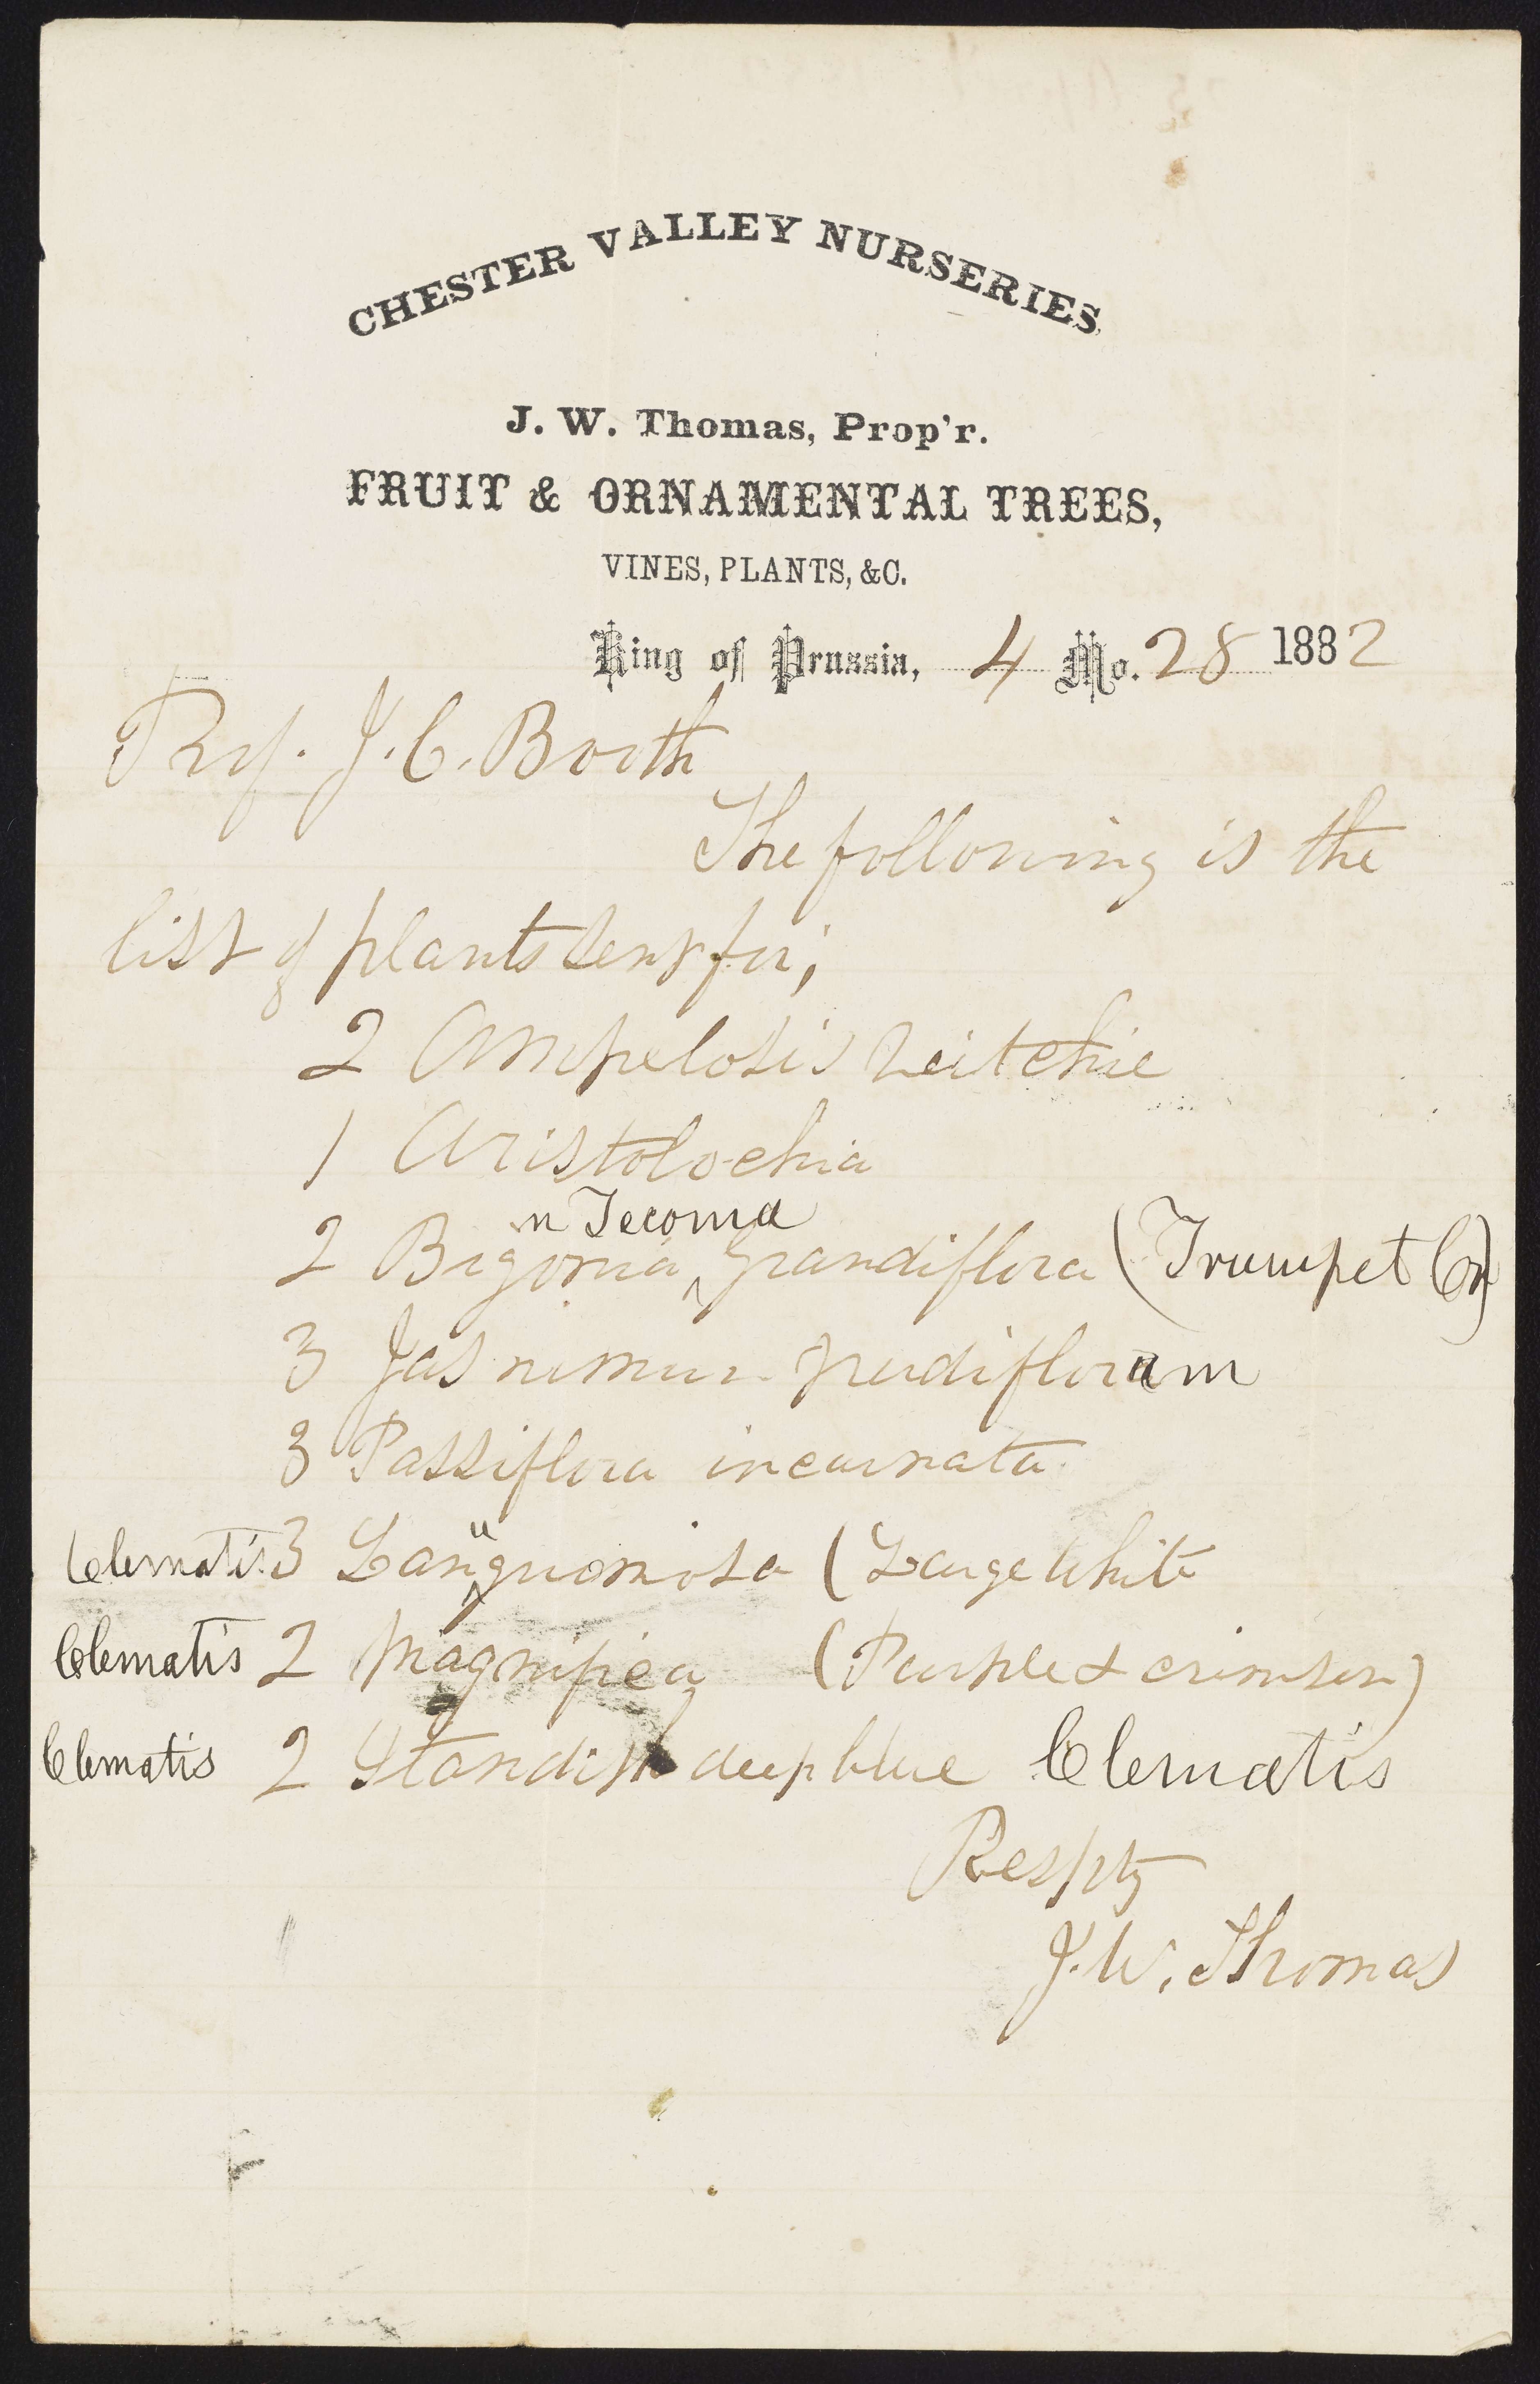 CHESTER VALLEY NURSERIES
J. W. Thomas, Prop'r.
FRUIT & ORNAMENTAL TREES,
VINES, PLANTS, &C.
King of Prussia, 4 Mo. 28 1882
Prof. J. C. Booth
The following is the
list of plants sent for;
2 Ampelosis Veitchie
1 Aristolochia
or Tecoma
2 Bigonia ^ grandiflora (Trumpet Cr)
3 Jasnimum nudifloram
3 Passiflora incarnata
u
Clematis 3 Lan^gnomosa (Large White
Clematis 2 Magnifica (Purple & crimson)
Clematis 2 Standish deep blue Clematis
Respty
J. W. Thomas